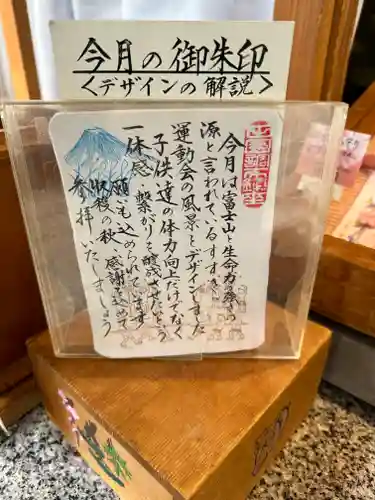 今月の御朱印
＜デザインの解説＞
今月は富士山と生命力の強さの
源と言われているすすきと
運動会の風景をデザインしました
子供達の体力向上だけでなく
一体感・繋がりを醸成させたいとい
願いも込められています
収穫の秋、感謝を込めて
参拝いたしましょう